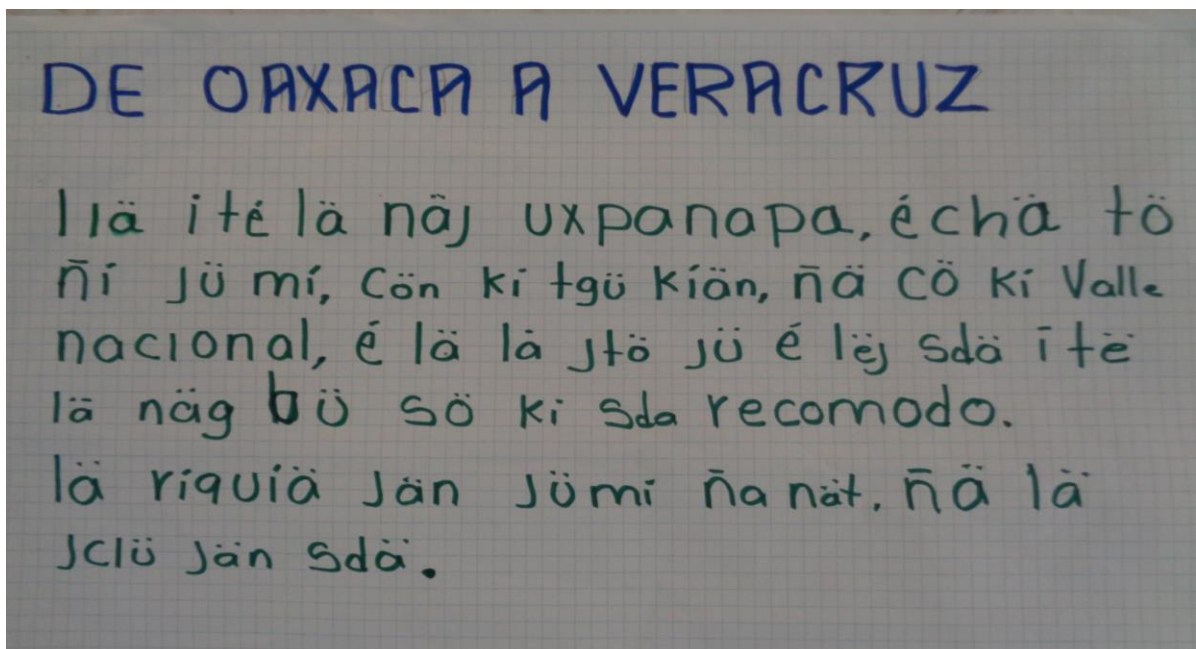 DE OAXACA A VERACRUZ
llä ité lä näj uxpanapa, échä tö
ñí jü mí, cön ki tgü kíän, ñä cö kí Valle
nacional, é lä lä jtö jü é lëj sdä ï të
lä näg bü sö ki sda recomodo.
lä ríquíä jän jümí ña nät, ñä lä
jclü jän sdä.